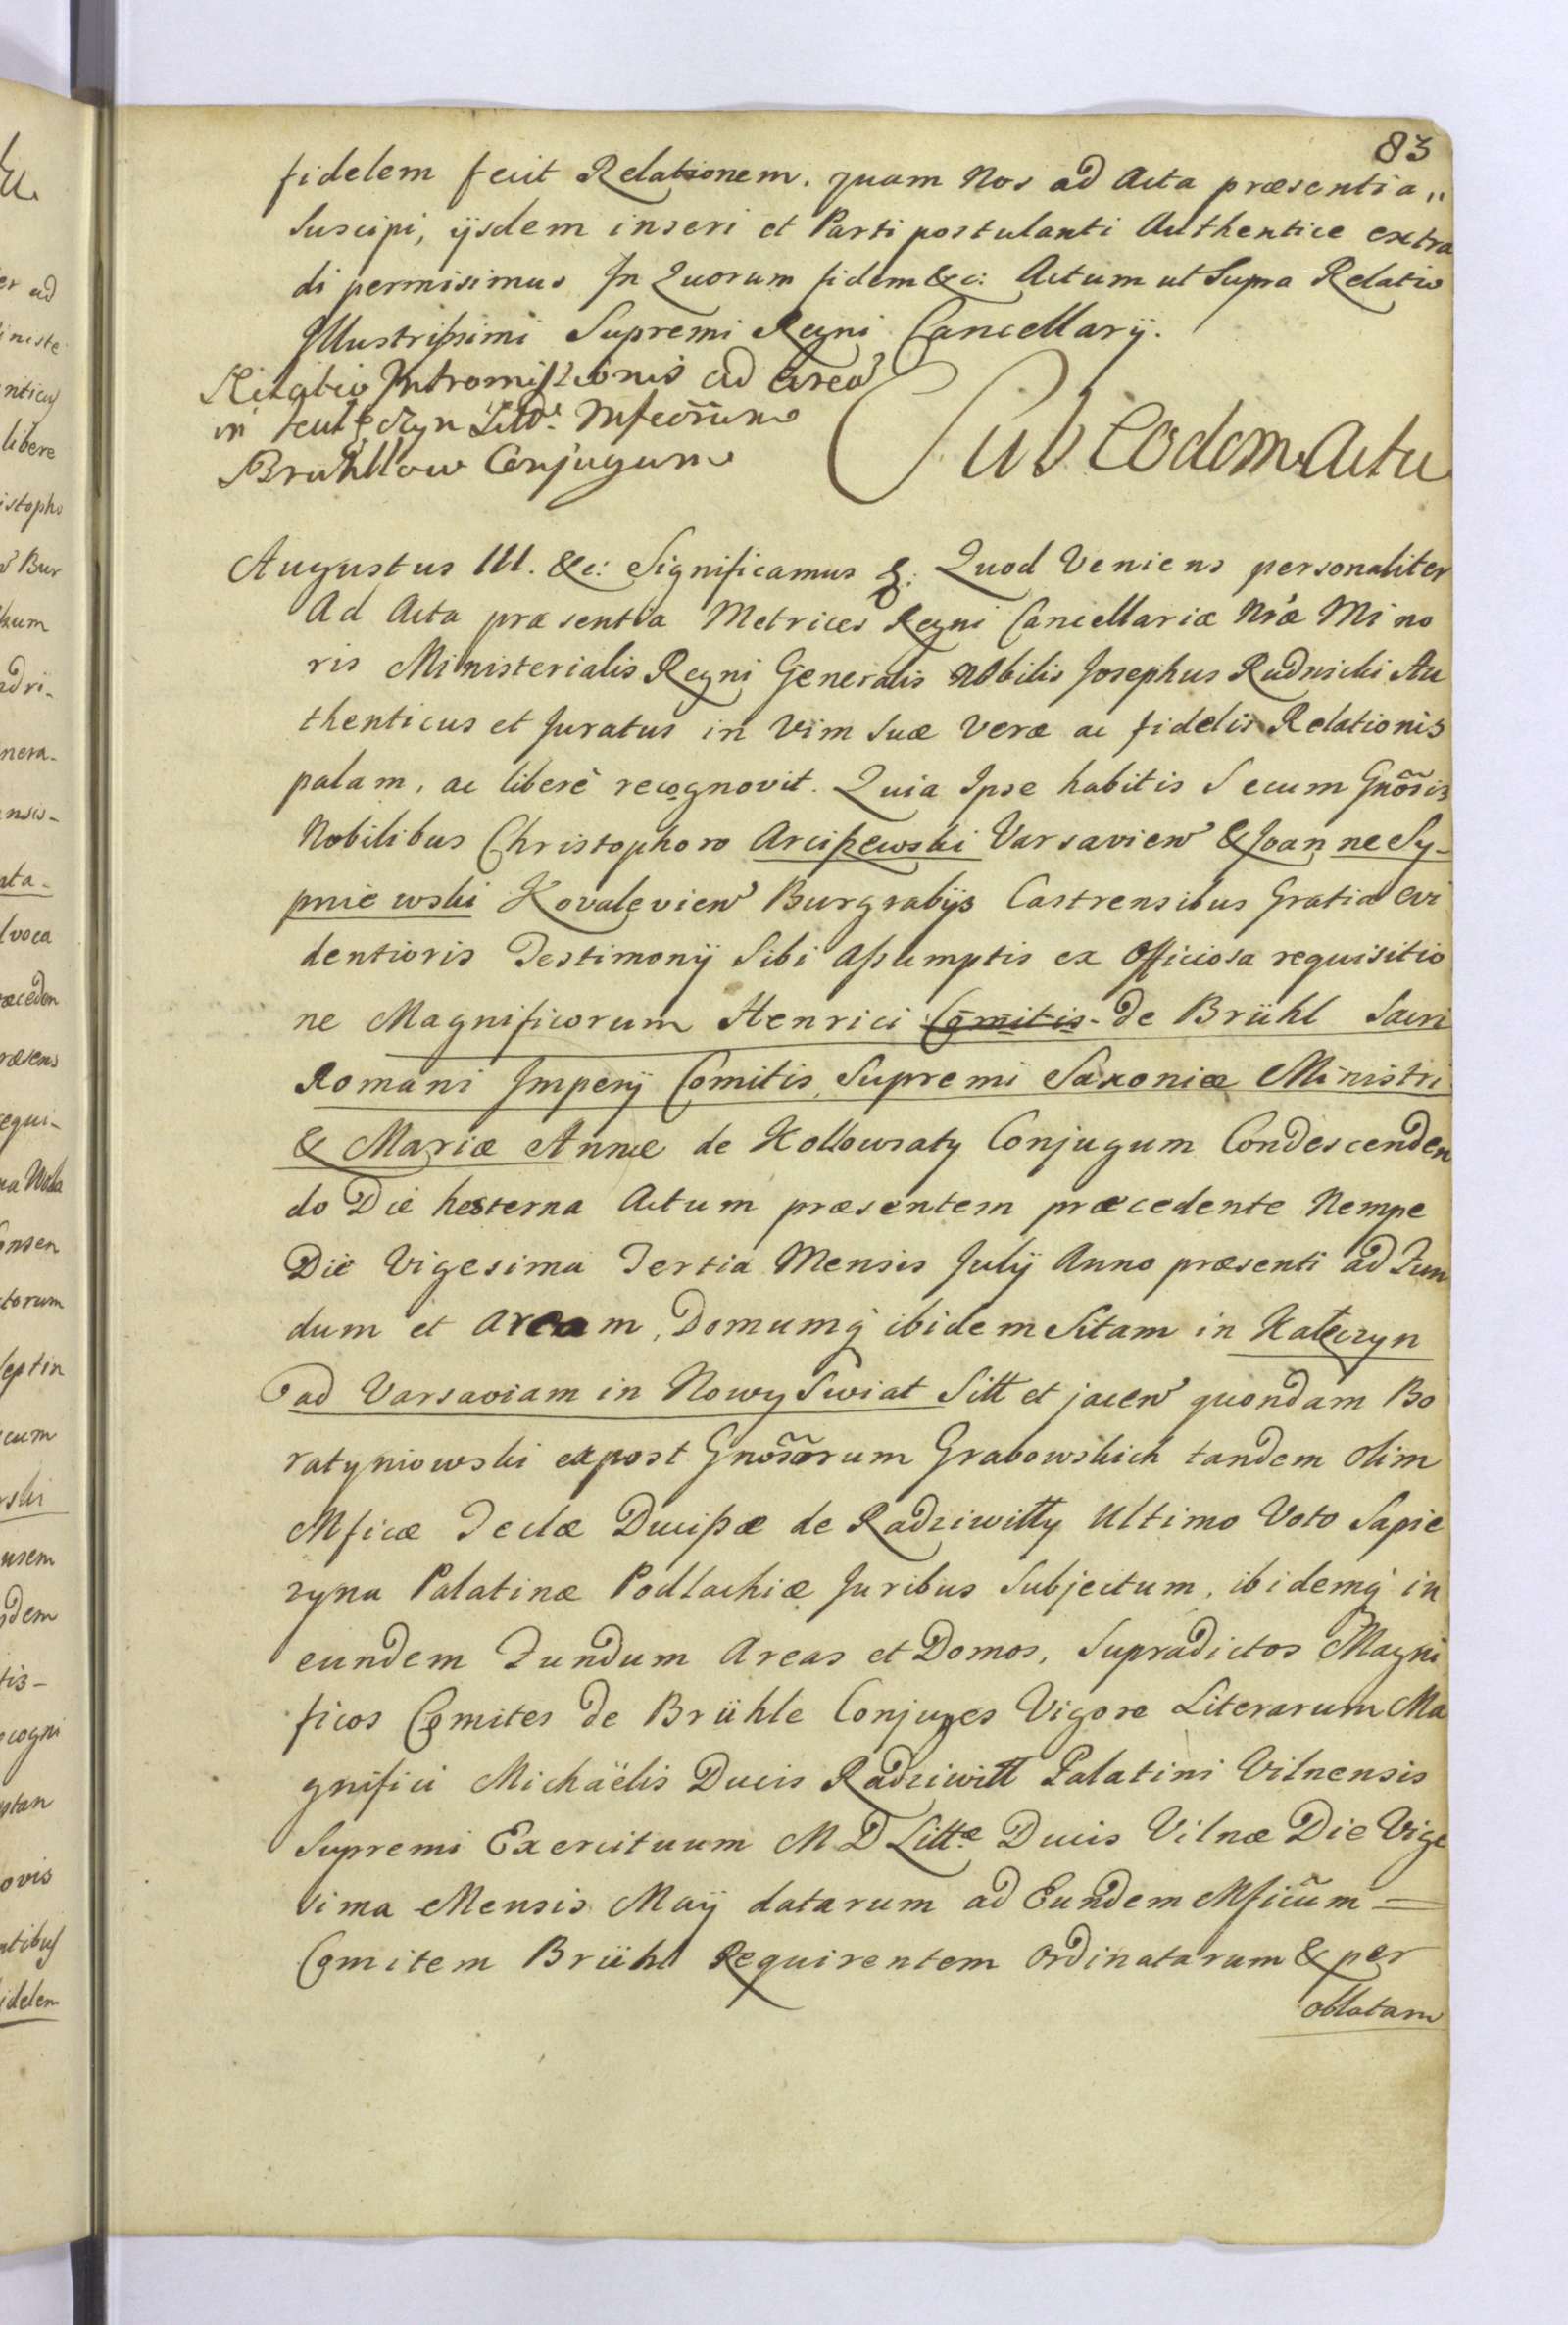 83
fidelem fecit Relationem. quam Nos ad Acta præsentia,,
Suscipi, ijsdem inseri et Parti postulanti Authentice extra
di permisimus In Quorum fidem &c: Actum ut Supra Relatio
Illustrißimi Supremi Regni Cancellarij.
Relatio Intromissionis ad area
in
Brühllow Conjugum
Sub Eodem Actu
Augustus III. &c: Significamus &: Quod Veniens personaliter
Ad Acta præsentia Metrices Regni Cancellariæ Nræ Mino
ris Ministerialis Regni Generalis Nobilis Josephus Rudnicki Au
thenticus et Juratus in Vim Suæ Veræ ac fidelis Relationis
palam, ac liberè recognovit. Quia Ipse habitis Secum Gnosis
Nobilibus Christophoro Arcißewski Varsavien & Joanne Sy-
pniewski Kovalevien Burgrabijs Castrensibus Gratia evi
dentioris Testimonij Sibi Aßumptis ex Officiosa requisitio
ne Magnificorum Henrici Comitis de Brühl Sacri
Romani Imperij Comitis, Supremi Saxoniæ Ministri
& Mariæ Annæ de Kollowraty Conjugum Condescenden
do Die hesterna Actum præsentem præcedente Nempe
Die Vigesima Tertia Mensis Julij Anno præsenti ad Fun
dum et aream, Domumq ibidem Sitam in Kałęczyn
ad Varsaviam in Nowy Swiat Sitt et jacen quondam Bo
ratyniowski expost Gnosorum Grabowskich tandem olim
Mficæ TeclæDucißæ de Radziwiłły Ultimo Voto Sapie
zyna Palatinæ Podlachiæ Juribus Subjectum, ibidemq in
eundem Fundum Areas et Domos, Supradictos Magni
ficos Comites de Brühle Conjuges Vigore Literarum Ma
gnifici Michaëlis Ducis Radziwiłł Palatini Vilnensis
Supremi Exercituum M D Littæ Ducis Vilnæ Die Vige
sima Mensis Maij datarum ad Eundem Mficum =
Comitem Brühl Requirentem Ordinatarum & per
oblatam